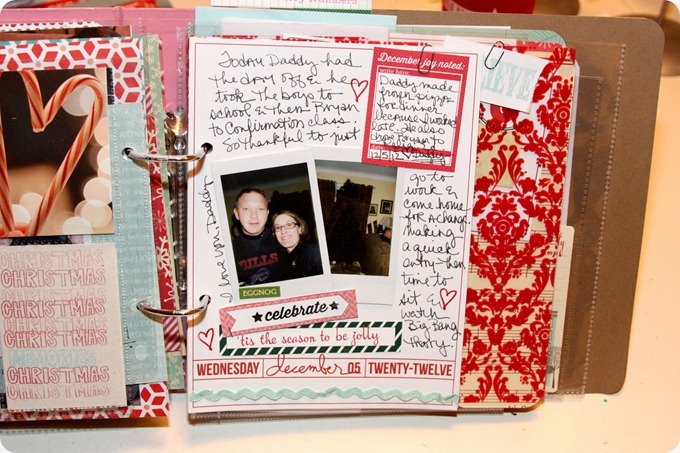 CHRISTMAS
CHRISTMAS
CHRISTMAS
CHRISTMAS
CHRISTMAS
MEMORIES
CHRISTMAS
CHRISTMAS
Today Daddy had
the day off & he
took the boys to
school & then
to Confirmation class.
So thankful to just
go to
work &
come home
for a change.
making
a quick
entry-then
time to
sit &
watch
Big Bang
Theory.
I love you, Daddy
December joy noted:
write here
Daddy made
frozen pizza
for dinner
because I worked
late. He also
to
Daddy
date
BELIEVE
BILLS
EGGNOG
★celebrate★
'tis the season to be jolly
WEDNESDAY december 05 TWENTY-TWELVE